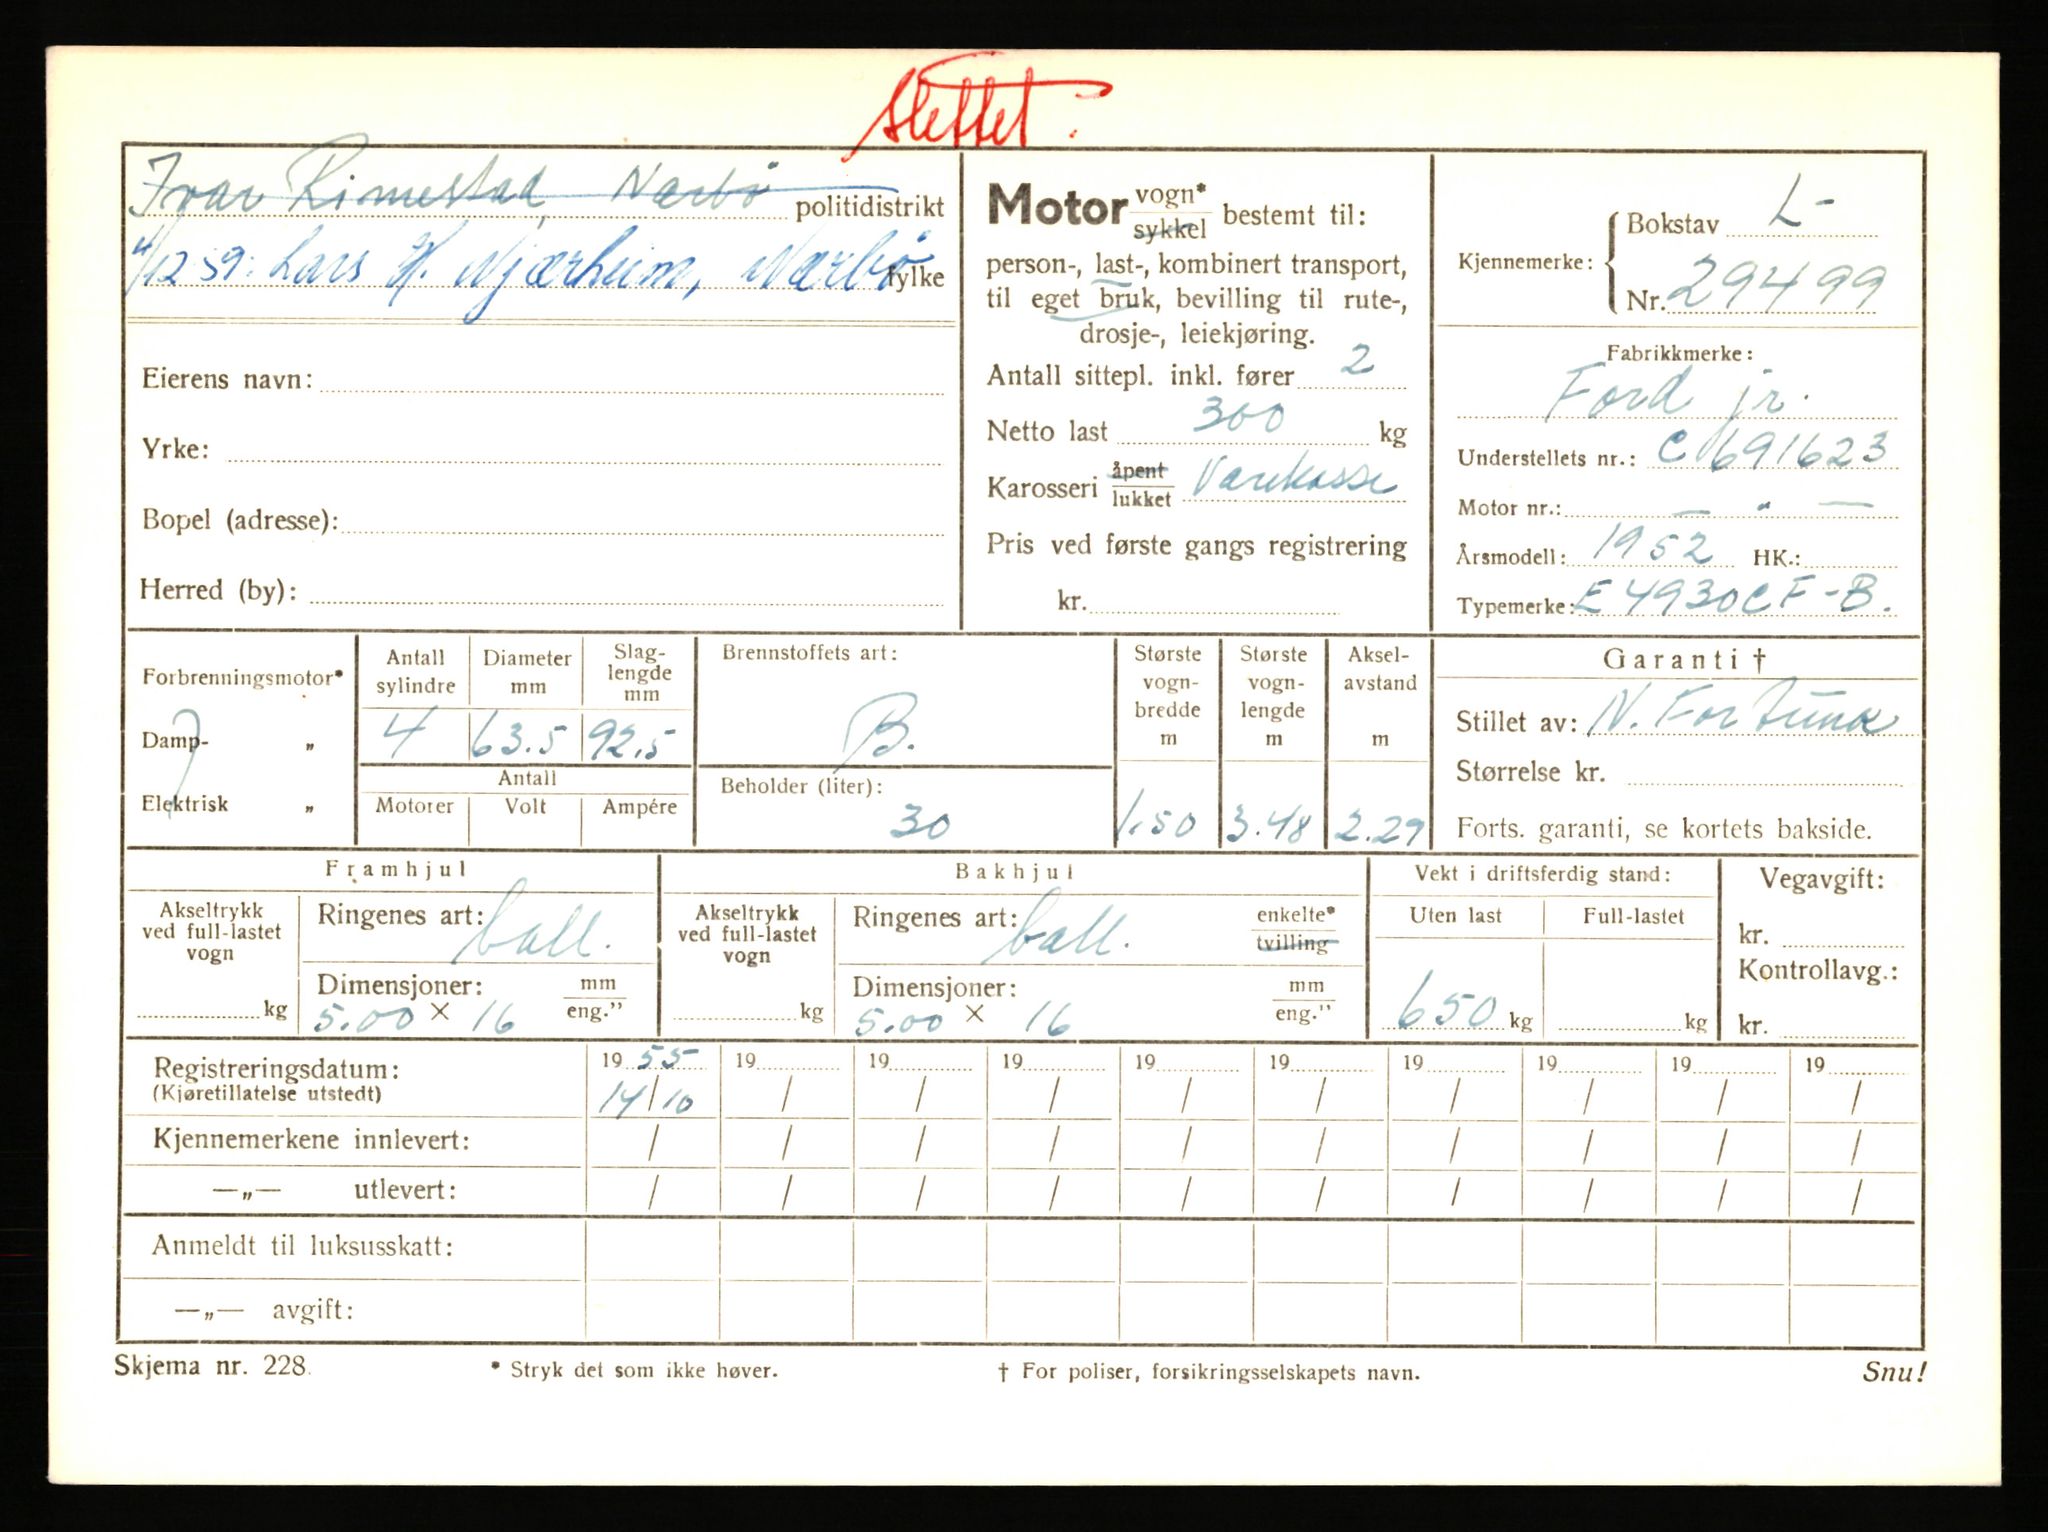 slettet.
Ivar Rimestad, Nærbø politidistrikt
4/12 59: Lars H. Njærheim, Nærbø fylke
Eierens navn:
Yrke:
Bopel (adresse):
Herred (by):
Motor vogn* / sykkel bestemt til:
person-, last-, kombinert transport,
til eget bruk, bevilling til rute-,
drosje-, leiekjøring.
Antall sittepl. inkl. fører 2
Netto last 300 kg
Karosseri åpent / lukket Varekasse
Pris ved første gangs registrering
kr.
Kjennemerke: Bokstav L-
Nr. 29499
Fabrikkmerke:
Ford jr.
Understellets nr.: C 691623
Motor nr.: — " —
Årsmodell: 1952 HK.:
Typemerke: E4930CF-B.
Forbrenningsmotor*
Damp- „
Elektrisk „
Antall sylindre 4
Diameter mm 63.5
Slag-lengde mm 92,5
Antall
Motorer Volt Ampére
Brennstoffets art:
B.
Beholder (liter):
30
Største vogn-bredde m 1.50
Største vogn-lengde m 3.48
Aksel-avstand m 2.29
Garanti †
Stillet av: N. Fortuna
Størrelse kr.
Forts. garanti, se kortets bakside.
Framhjul
Akseltrykk ved full-lastet vogn kg
Ringenes art: ball.
Dimensjoner: mm / eng."
5.00 × 16
Bakhjul
Akseltrykk ved full-lastet vogn kg
Ringenes art: ball. enkelte* / tvilling
Dimensjoner: mm / eng."
5.00 × 16
Vekt i driftsferdig stand:
Uten last Full-lastet
650 kg kg
Vegavgift:
kr.
Kontrollavg.:
kr.
Registreringsdatum: 19 55 19 19 19 19 19 19 19 19 19
(Kjøretillatelse utstedt) 14/10 / / / / / / / / /
Kjennemerkene innlevert: / / / / / / / / / /
—„— utlevert: / / / / / / / / / /
Anmeldt til luksusskatt:
—„— avgift:
Skjema nr. 228. * Stryk det som ikke høver. † For poliser, forsikringsselskapets navn. Snu!